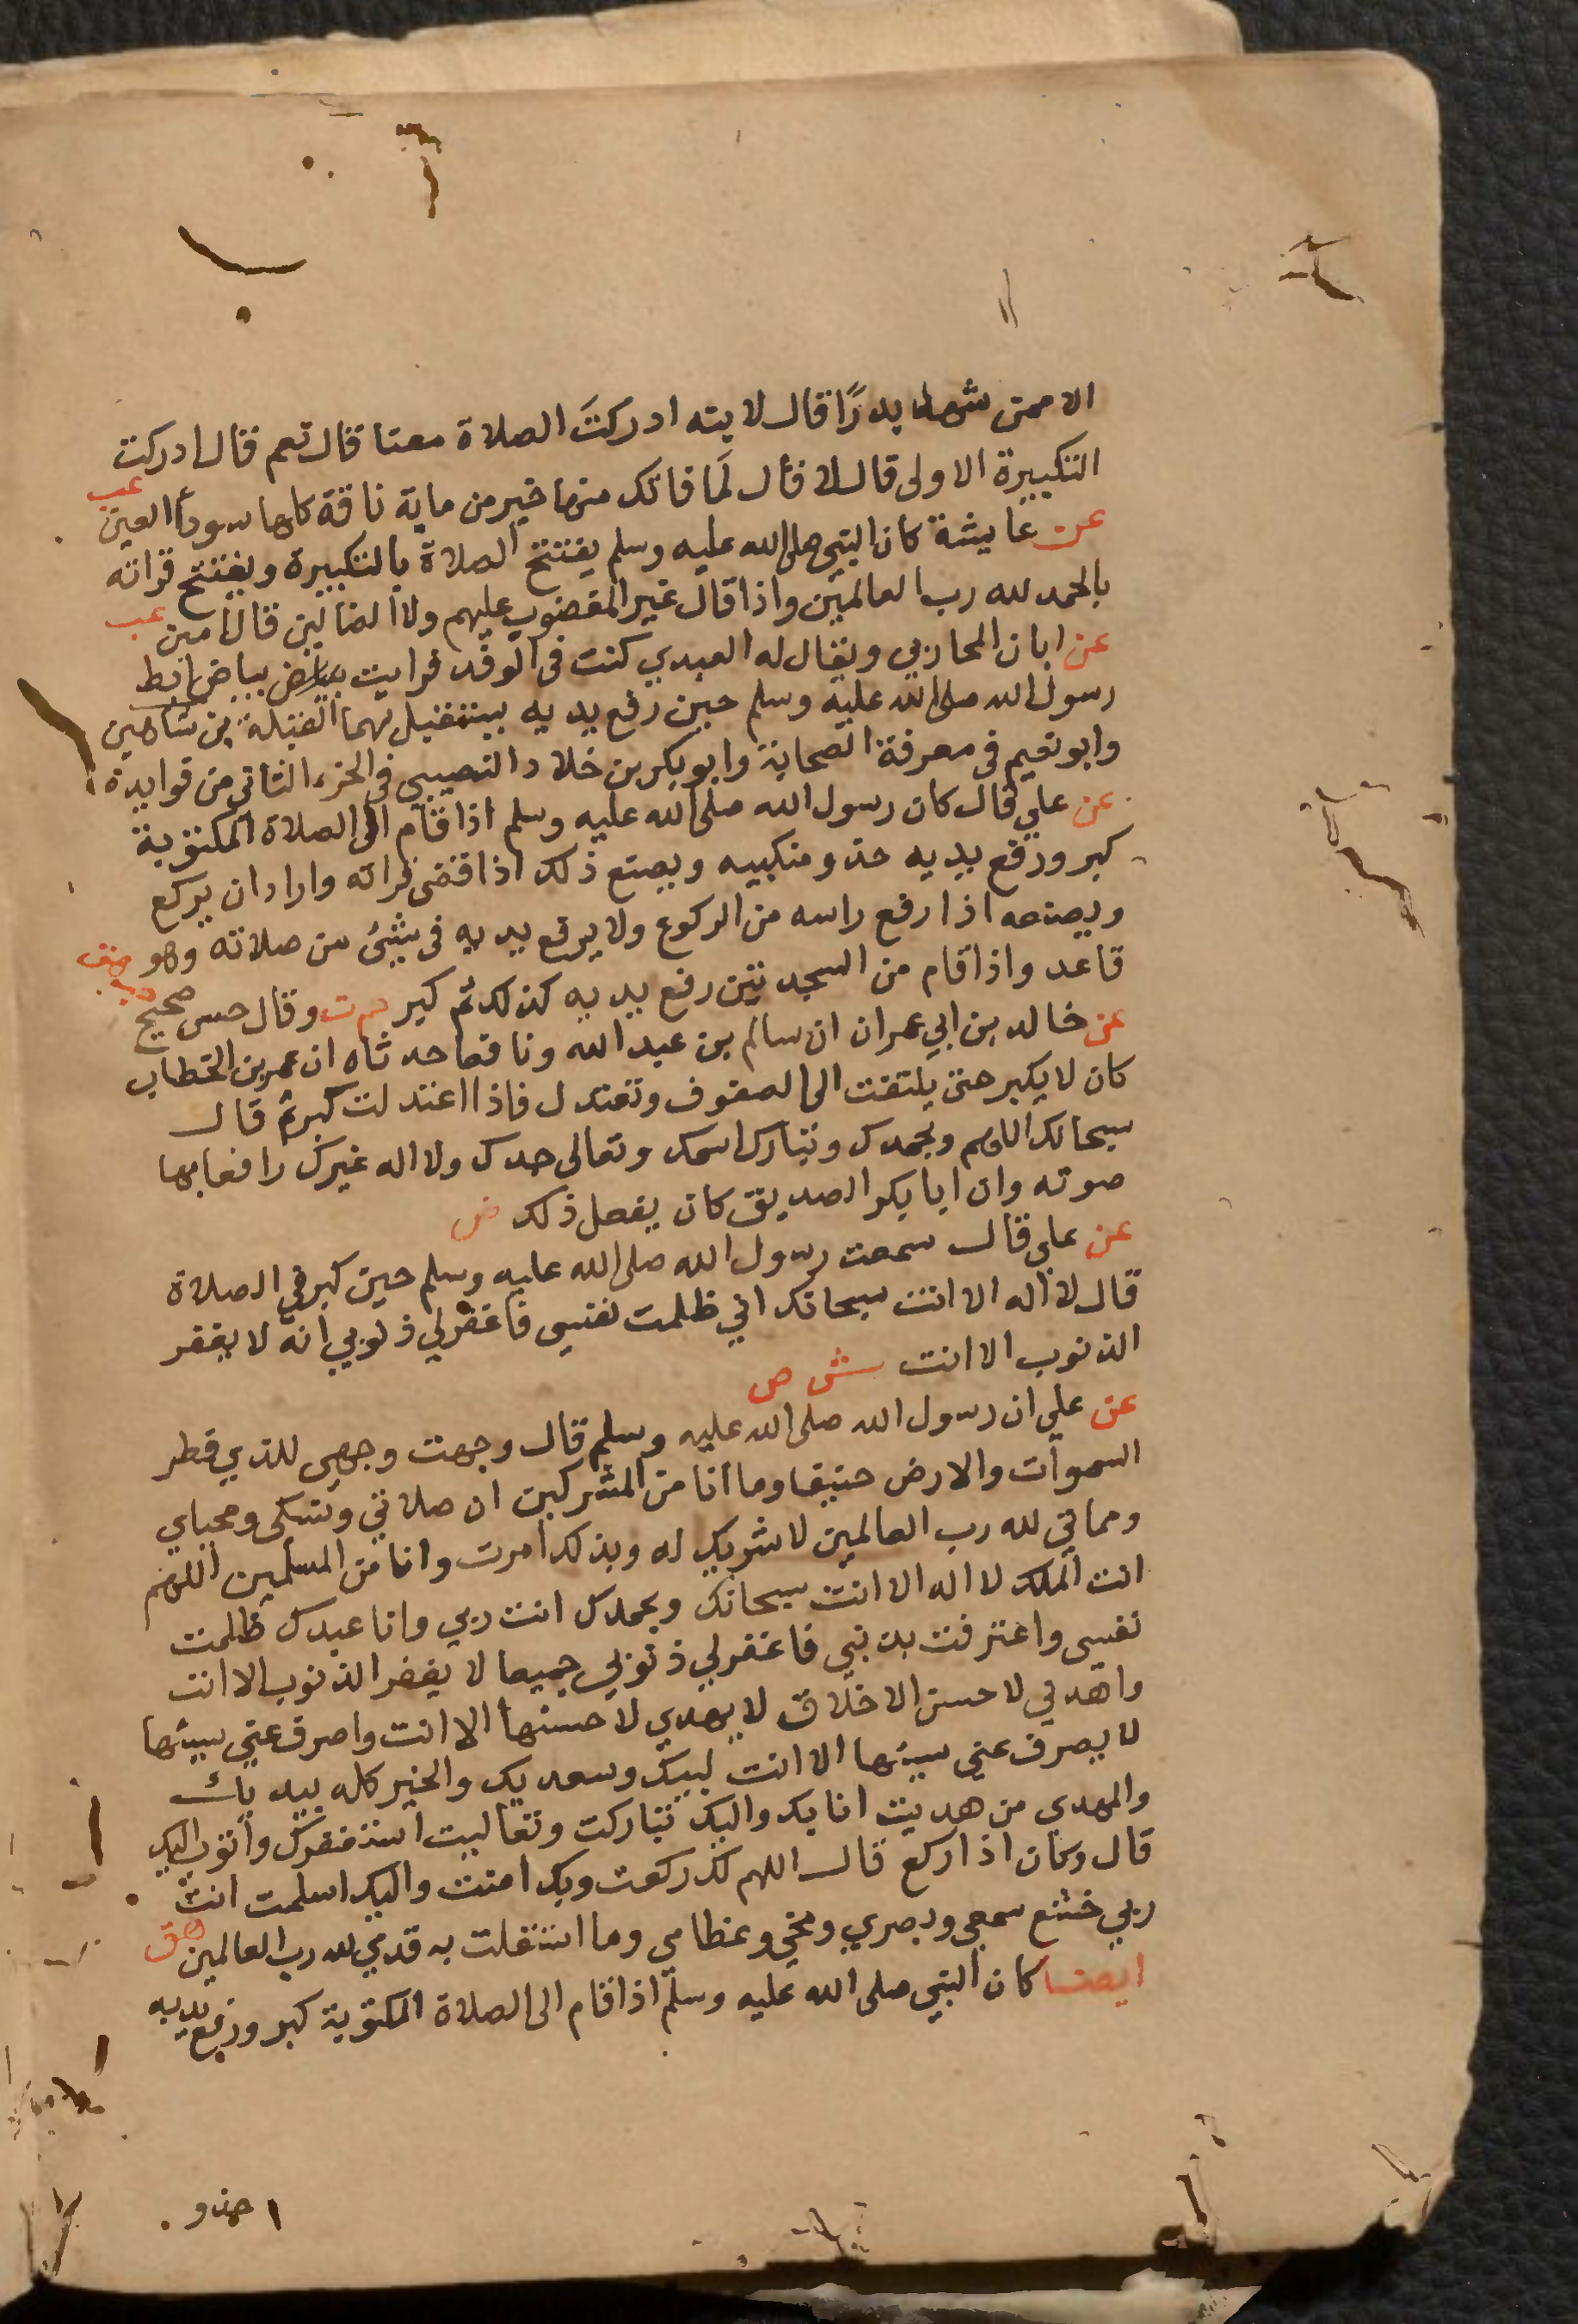 الا ممن شهد بدرًا قال لابنه ادركتَ الصلاة معنا قال نعم قال ادركت
التكبيرة الاولى قال لا قال لَما فاتك منها خير من ماية ناقة كلها سود العين عب
عن عايشة كان النبي صلى الله عليه وسلم يفتتح الصلاة بالتكبيرة ويفتتح قراته
بالحمد لله رب العالمين واذا قال غير المغضوب عليهم ولا الضالين قال امين عب
عن ابان المحاربي ويقال له العبدي كنت في الوفد فرايت بياض بياض ابط
رسول الله صلى الله عليه وسلم حين رفع يديه يستقبل بهما القبلة بن شاهين
وابو نعيم في معرفة الصحابة وابو بكر بن خلاد النصيبي في الجزء الثاني من فوايده
عن علي قال كان رسول الله صلى الله عليه وسلم اذا قام الى الصلاة المكتوبة
كبر ورفع يديه حذو منكبيه ويصنع ذلك اذا قضى قراته واراد ان يركع
ويصنعه اذا رفع راسه من الركوع ولا يرفع يديه في شئ من صلاته وهو
قاعد واذا قام من السجدتين رفع يديه كذلك ثم كبر حم ت وقال حسن صحيح
عن خالد بن ابي عمران ان سالم بن عبد الله ونافعا حدثاه ان عمر بن الخطاب
كان لا يكبر حتى يلتفت الى الصفوف وتعتدل فاذا اعتدلت كبر ثم قال
سبحانك اللهم وبحمدك وتبارك اسمك وتعالى جدك ولا اله غيرك رافعا بها
صوته وان ابا بكر الصديق كان يفعل ذلك ض
عن علي قال سمعت رسول الله صلى الله عليه وسلم حين كبر في الصلاة
قال لا اله الا انت سبحانك اني ظلمت نفسي فاغفر لي ذنوبي انه لا يغفر
الذنوب الا انت ش ص
عن علي ان رسول الله صلى الله عليه وسلم قال وجهت وجهي للذي فطر
السموات والارض حنيفا وما انا من المشركين ان صلاتي ونسكي ومحياي
ومماتي لله رب العالمين لا شريك له وبذلك امرت وانا من المسلمين اللهم
انت الملك لا اله الا انت سبحانك وبحمدك انت ربي وانا عبدك ظلمت
نفسي واعترفت بذنبي فاغفر لي ذنوبي جميعا لا يغفر الذنوب الا انت
واهدني لاحسن الاخلاق لا يهدي لاحسنها الا انت واصرف عني سيئها
لا يصرف عني سيئها الا انت لبيك وسعديك والخير كله بيديك
والمهدي من هديت انا بك واليك تباركت وتعاليت استغفرك واتوب اليك
قال وكان اذا ركع قال اللهم لك ركعت وبك امنت واليك اسلمت انت
ربي خشع سمعي وبصري ومخي وعظامي وما استقلت به قدمي لله رب العالمين هق
ايضا كان النبي صلى الله عليه وسلم اذا قام الى الصلاة المكتوبة كبر ورفع يديه
حذو